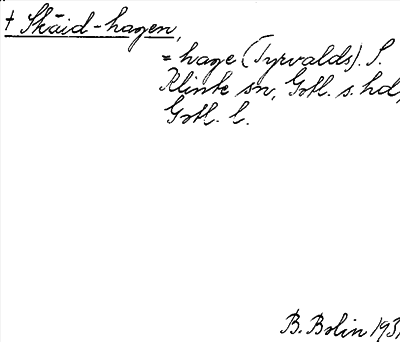 † Skäid-hagen,
= hage (Tyrvalds). S.
Klinte sn, Gotl. s. hd,
Gotl. l.
B. Bolin 193